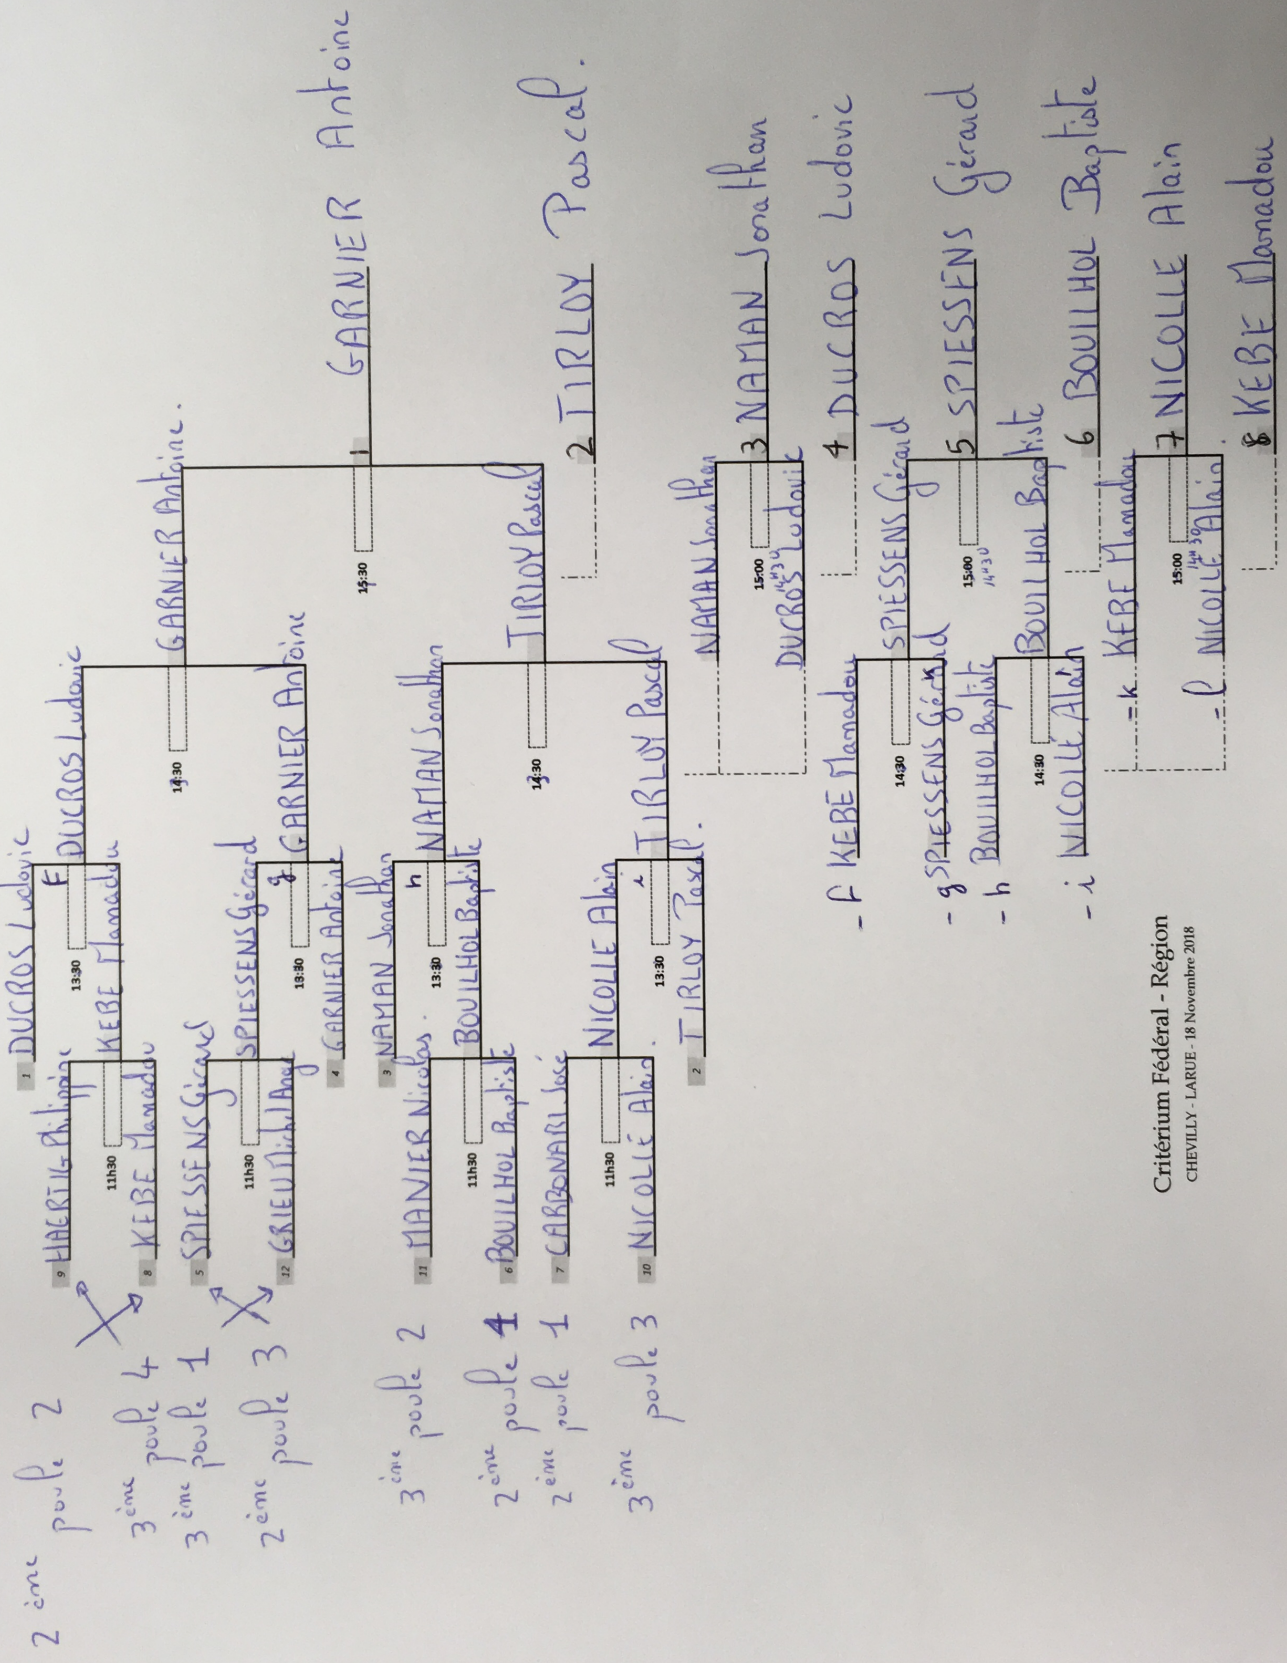 2 ème poule 2
3 ème poule 4
3 ème poule 1
2 ème poule 3
3 ème poule 2
2 ème poule 4
2 ème poule 1
3 ème poule 3
9 HAERTIG Philippine
8 KEBE Mamadou
5 SPIESSENS Gérard
12 GRIEU Michel Ange
11 MANIER Nicolas.
6 BOUILHOL Baptiste
7 CARBONARI José
10 NICOLLE Alain.
11h30
11h30
11h30
11h30
1 DUCROS Ludovic
KEBE Mamadou
SPIESSENS Gérard
4 GARNIER Antoine
3 NAMAN Jonathan
BOUILHOL Baptiste
NICOLLE Alain
2 TIRLOY Pascal.
13:30
13:30
13:30
13:30
F DUCROS Ludovic
g GARNIER Antoine
h NAMAN Jonathan
i TIRLOY Pascal
14:30
14:30
GARNIER Antoine.
TIRLOY Pascal
15:30
1 GARNIER Antoine
2 TIRLOY Pascal.
NAMAN Jonathan
15:00
14H30
DUCROS Ludovic
3 NAMAN Jonathan
4 DUCROS Ludovic
- f KEBE Mamadou
14:30
- g SPIESSENS Gérard
- h BOUILHOL Baptiste
14:30
- i NICOLLE Alain
SPIESSENS Gérard
15:00
14H30
BOUILHOL Baptiste
5 SPIESSENS Gérard
6 BOUILHOL Baptiste
- k KEBE Mamadou
15:00
14H30
- l NICOLLE Alain.
7 NICOLLE Alain
8 KEBE Mamadou
Critérium Fédéral - Région
CHEVILLY - LARUE - 18 Novembre 2018